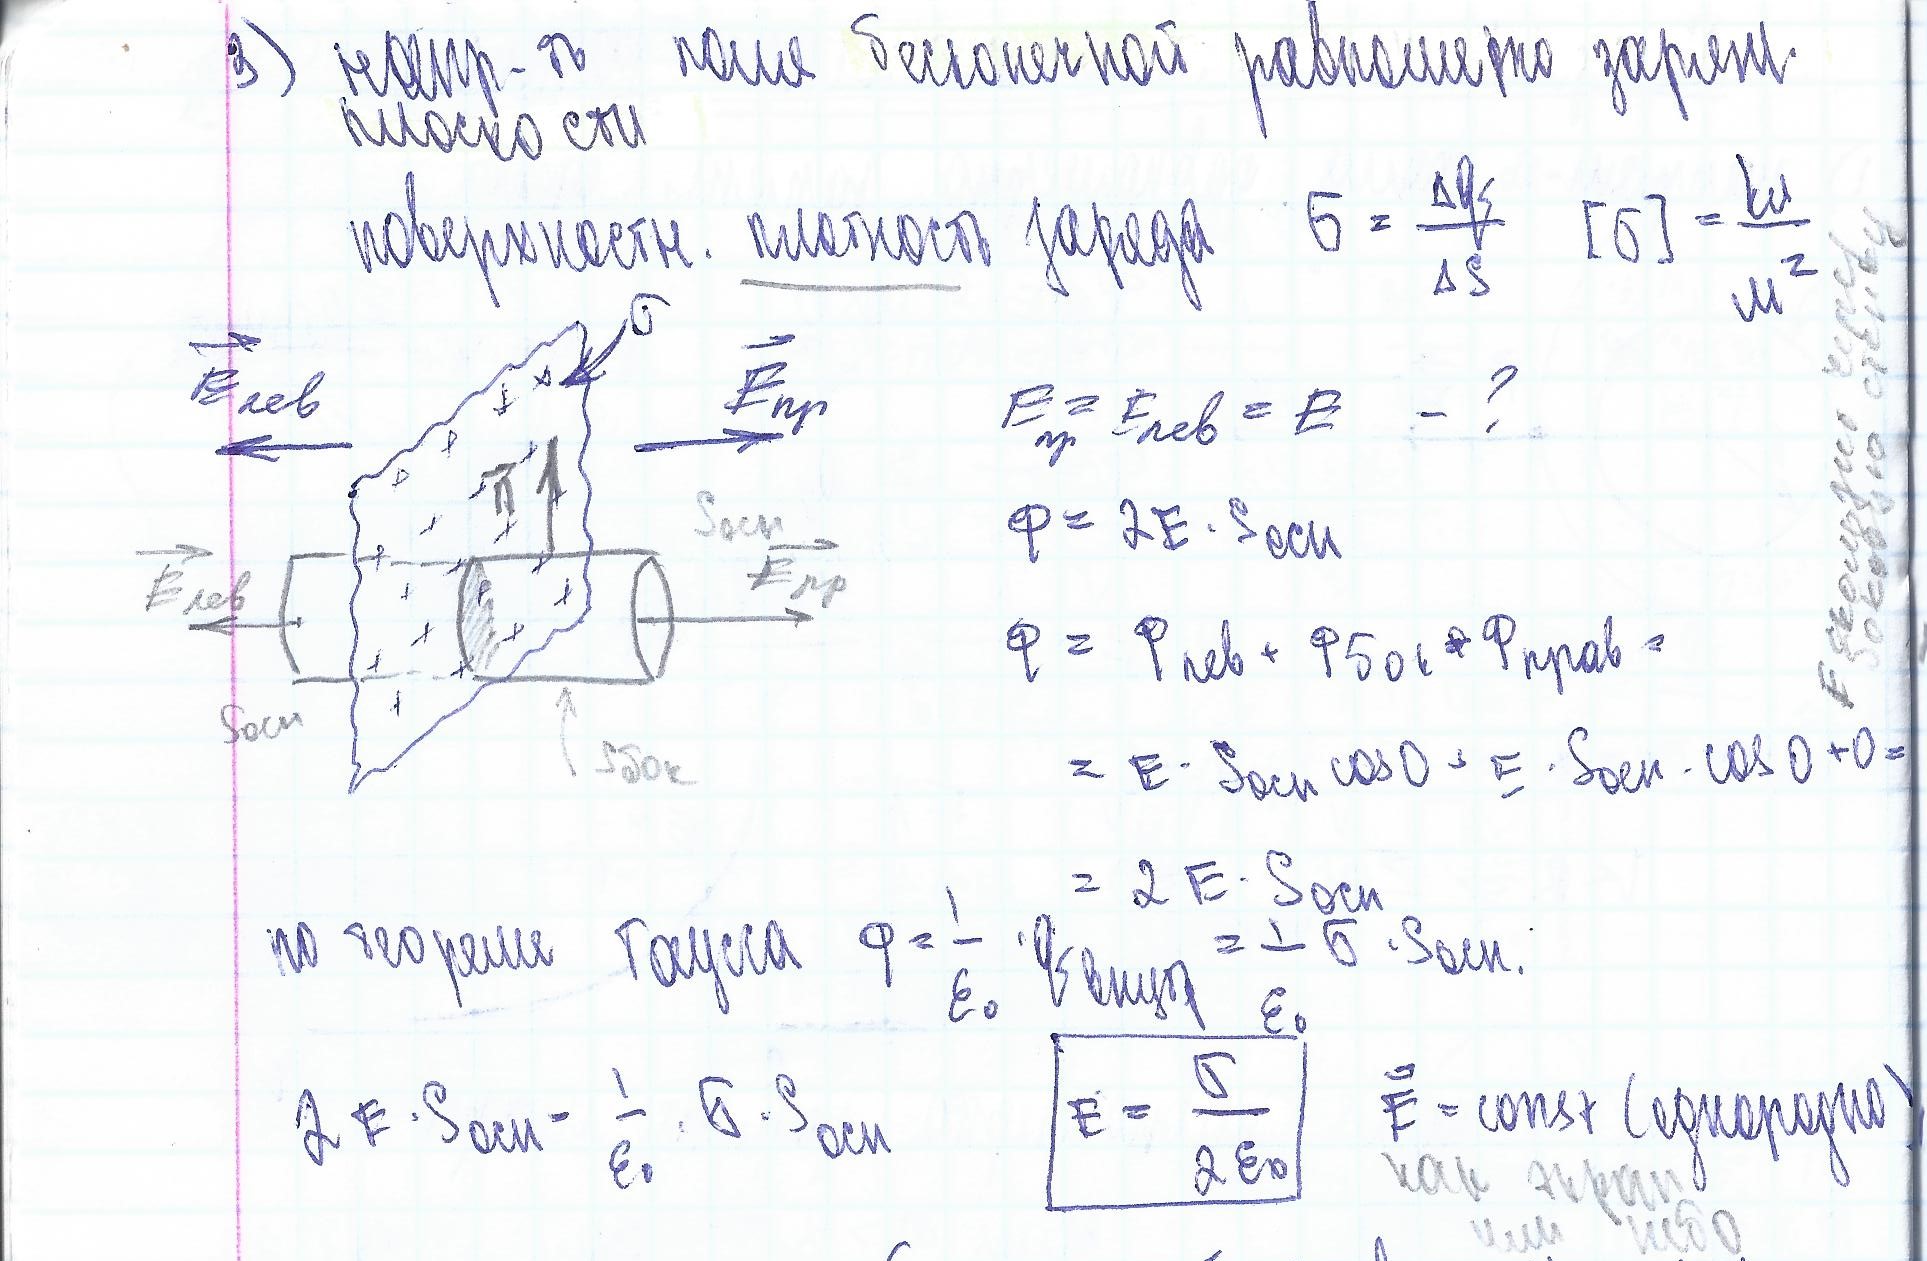 3) напр-ть поля бесконечной равномерно заряж.
плоскости
поверхностн. плотность заряда σ = Δq/ΔS [σ] = Кл/м²
σ
E⃗лев E⃗пр
Eпр = Eлев = E – ?
n⃗
Sосн
Φ = 2E · Sосн
E⃗лев E⃗пр
Φ = Φлев + Φбок + Φправ =
Sосн Sбок
= E · Sосн cos0 + E · Sосн · cos0 + 0 =
= 2E · Sосн
по теореме Гаусса Φ = 1/ε₀ · qвнутр = 1/ε₀ σ · Sосн.
2E · Sосн = 1/ε₀ · σ · Sосн
E = σ/2ε₀
E⃗ = const (однородно)
как экран
или небо